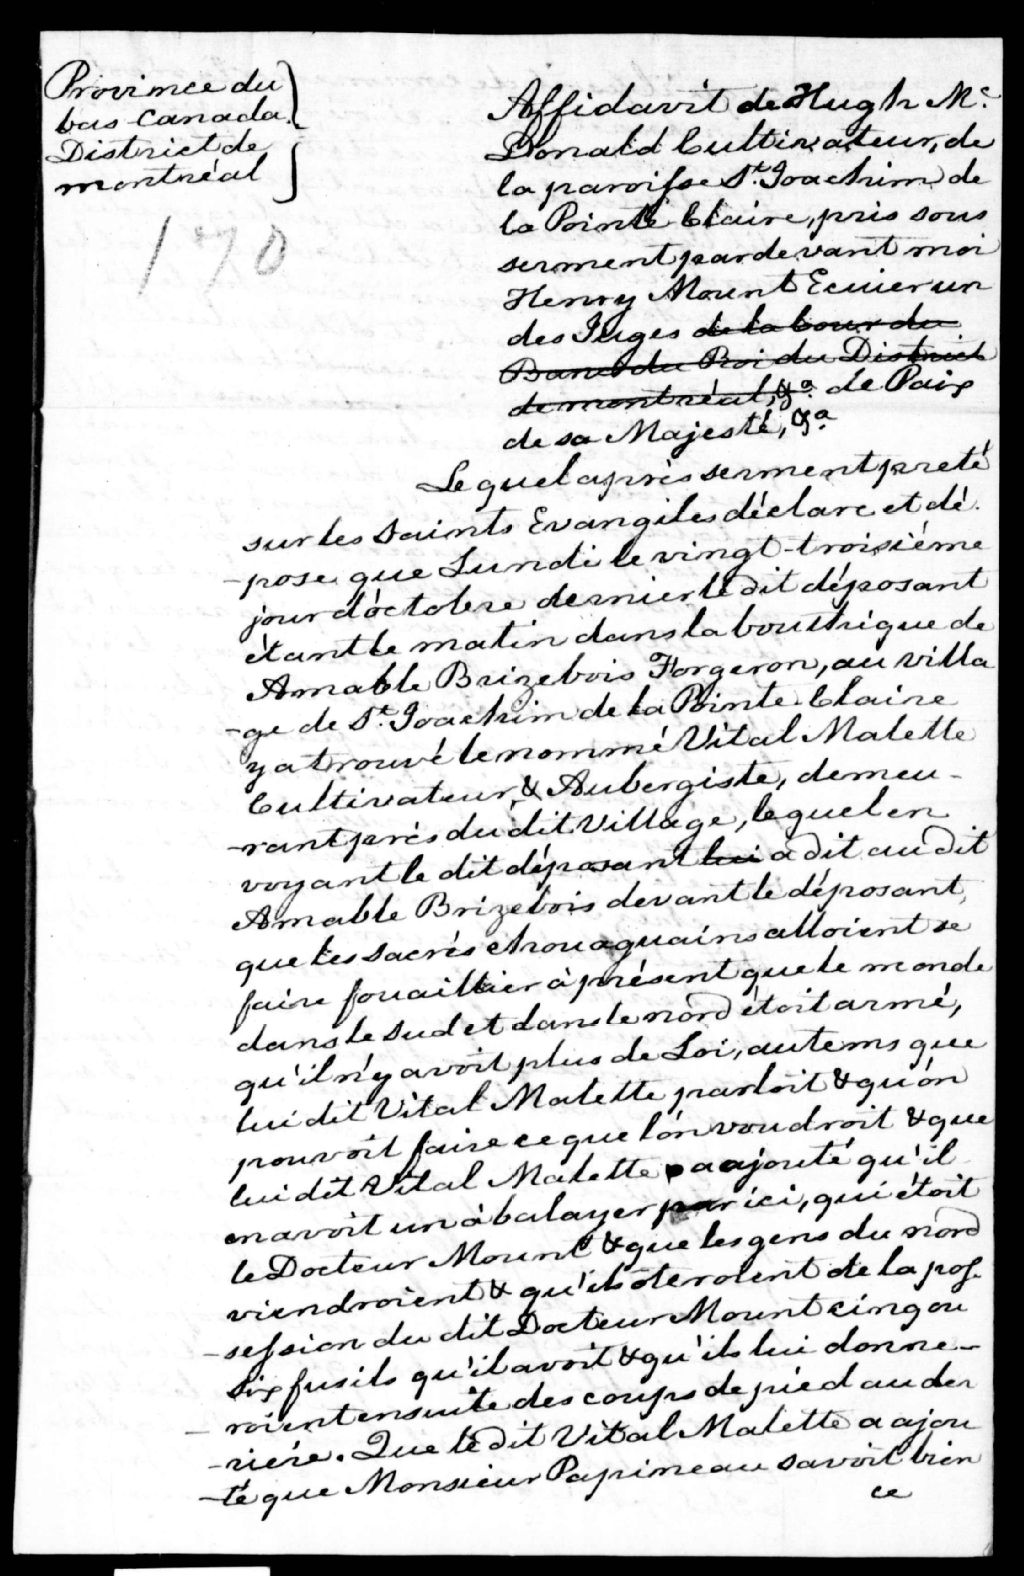 Province du
bas-Canada.
District de
montréal
170
Affidavit de Hugh Mc.
Donald Cultivateur, de
la paroisse St. Joachim de
la Pointe Claire, pris sous
serment pardevant moi
Henry Mount Ecuier un
des Juges de la Cour du
Banc du Roi du District
de montréal, &a. de Paix
de sa Majesté, &a
Lequel après serment preté
sur les Saints Evangiles déclare et dé-
-pose que Lundi le vingt-troisiéme
jour d'octobre dernier le dit déposant
étant le matin dans la bouthique de
Amable Brizebois Forgeron, au villa
-ge de St. Joachim de la Pointe Claire
y a trouvé le nommé Vital Malette
Cultivateur & Aubergiste, demeu-
-rant près du dit Village, lequel en
voyant le dit déposant lui a dit au dit
Amable Brizebois devant le déposant,
que les sacrés chouaguains alloient se
faire fouaillier à présent que le monde
dans le sud et dans le nord étoit armé,
qu'il n'y avoit plus de Loi, au tems que
lui dit Vital Malette parloit & qu'on
pouvoit faire ce que l'on voudroit & que
lui dit Vital Malette a ajouté qu'il
en avoit un à balayer par ici, qui étoit
le Docteur Mount & que les gens du nord
viendroient & qu'ils ôteroient de la pos-
-session du dit Docteur Mount cinq ou
six fusils qu'il avoit & qu'ils lui donne-
-roient ensuite des coups de pied au der
-riére. Que le dit Vital Malette a ajou
-té que Monsieur Papineau savoit bien
ce